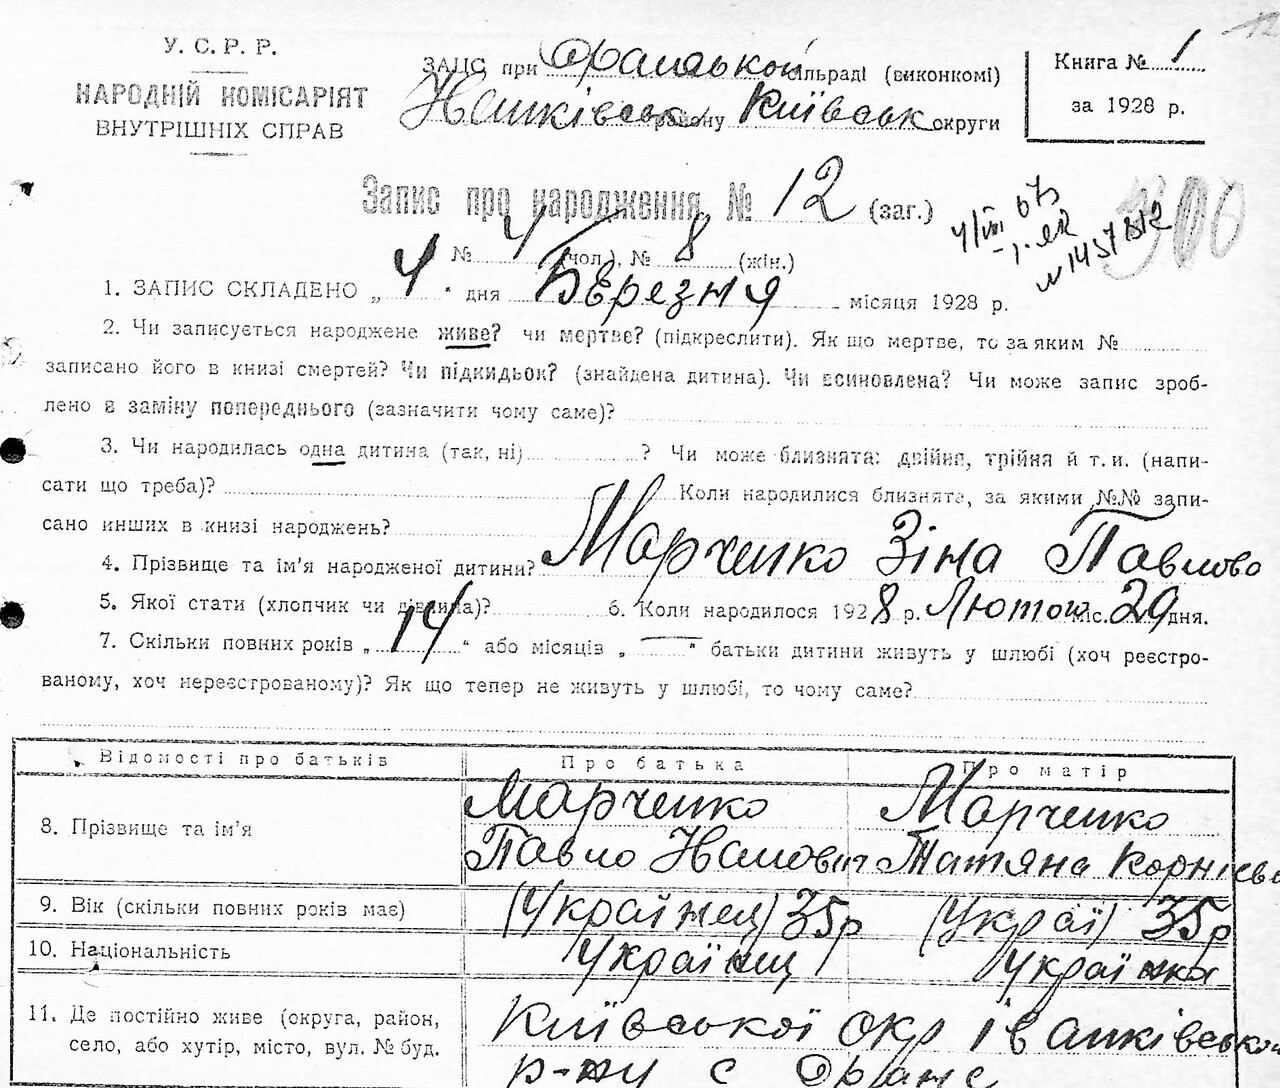 У. С. Р. Р.
НАРОДНІЙ КОМІСАРІЯТ
ВНУТРІШНІХ СПРАВ
ЗАГС при Оранської сільраді (виконкомі)
Іванківськ району Київськ округи
Книга № 1
за 1928 р.
12
Запис про народження № 12 (заг.)
№ 4 (чол.), № 8 (жін.)
300
№ 1457812
1. ЗАПИС СКЛАДЕНО „ 4 " дня Березня місяця 1928 р.
2. Чи записується народжене живе? чи мертве? (підкреслити). Як що мертве, то за яким №
записано його в книзі смертей? Чи підкидьок? (знайдена дитина). Чи всиновлена? Чи може запис зроб-
лено в заміну попереднього (зазначити чому саме)?
3. Чи народилась одна дитина (так, ні) ? Чи може близнята: двійня, трійня й т. и. (напи-
сати що треба)? Коли народилися близнята, за якими №№ запи-
сано инших в книзі народжень?
4. Прізвище та ім'я народженої дитини? Марченко Зіна Павлово
5. Якої стати (хлопчик чи дівчина)? 6. Коли народилося 1928 р. Лютого міс. 29 дня.
7. Скільки повних років „ 14 " або місяців „ — " батьки дитини живуть у шлюбі (хоч реєстро-
ваному, хоч нереєстрованому)? Як що тепер не живуть у шлюбі, то чому саме?
Відомості про батьків Про батька Про матір
8. Прізвище та ім'я Марченко Павло Іванович Марченко Татяна Корнієв
9. Вік (скільки повних років має) (Українец) 35р (Украї) 35р
10. Національність Українец Українка
11. Де постійно живе (округа, район, Київської окр Іванківської
село, або хутір, місто, вул. № буд. р-ну с Оране